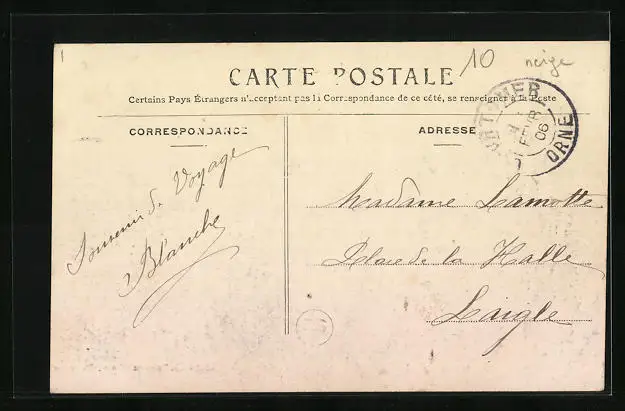 10
neige
CARTE POSTALE
Certains Pays Étrangers n'acceptent pas la Correspondance de ce côté, se renseigner à la Poste
CORRESPONDANCE
ADRESSE
FEVR
06
ORNE
Souvenir de Voyage
Blanche
Madame Lamotte
Place de la Halle
Laigle